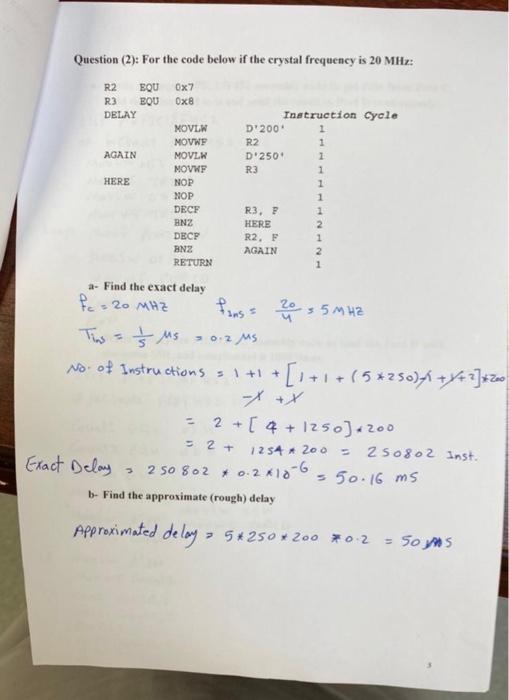 Question (2): For the code below if the crystal frequency is 20 MHz:
R2 EQU 0x7
R3 EQU 0x8
DELAY Instruction Cycle
MOVLW D'200' 1
MOVWF R2 1
AGAIN MOVLW D'250' 1
MOVWF R3 1
HERE NOP 1
NOP 1
DECF R3, F 1
BNZ HERE 2
DECF R2, F 1
BNZ AGAIN 2
RETURN 1
a- Find the exact delay
fc = 20 MHZ fins = 20/4 = 5 MHZ
Tins = 1/5 Ms = 0.2 Ms
No. of Instructions = 1 +1 + [1+1+(5*250)-1+1+2]*200
-1 +1
= 2 + [4 + 1250]*200
= 2 + 1254 * 200 = 250802 Inst.
Exact Delay = 250802 * 0.2 * 10^-6 = 50.16 ms
b- Find the approximate (rough) delay
Approximated delay = 5*250*200 *0.2 = 50 ms
3